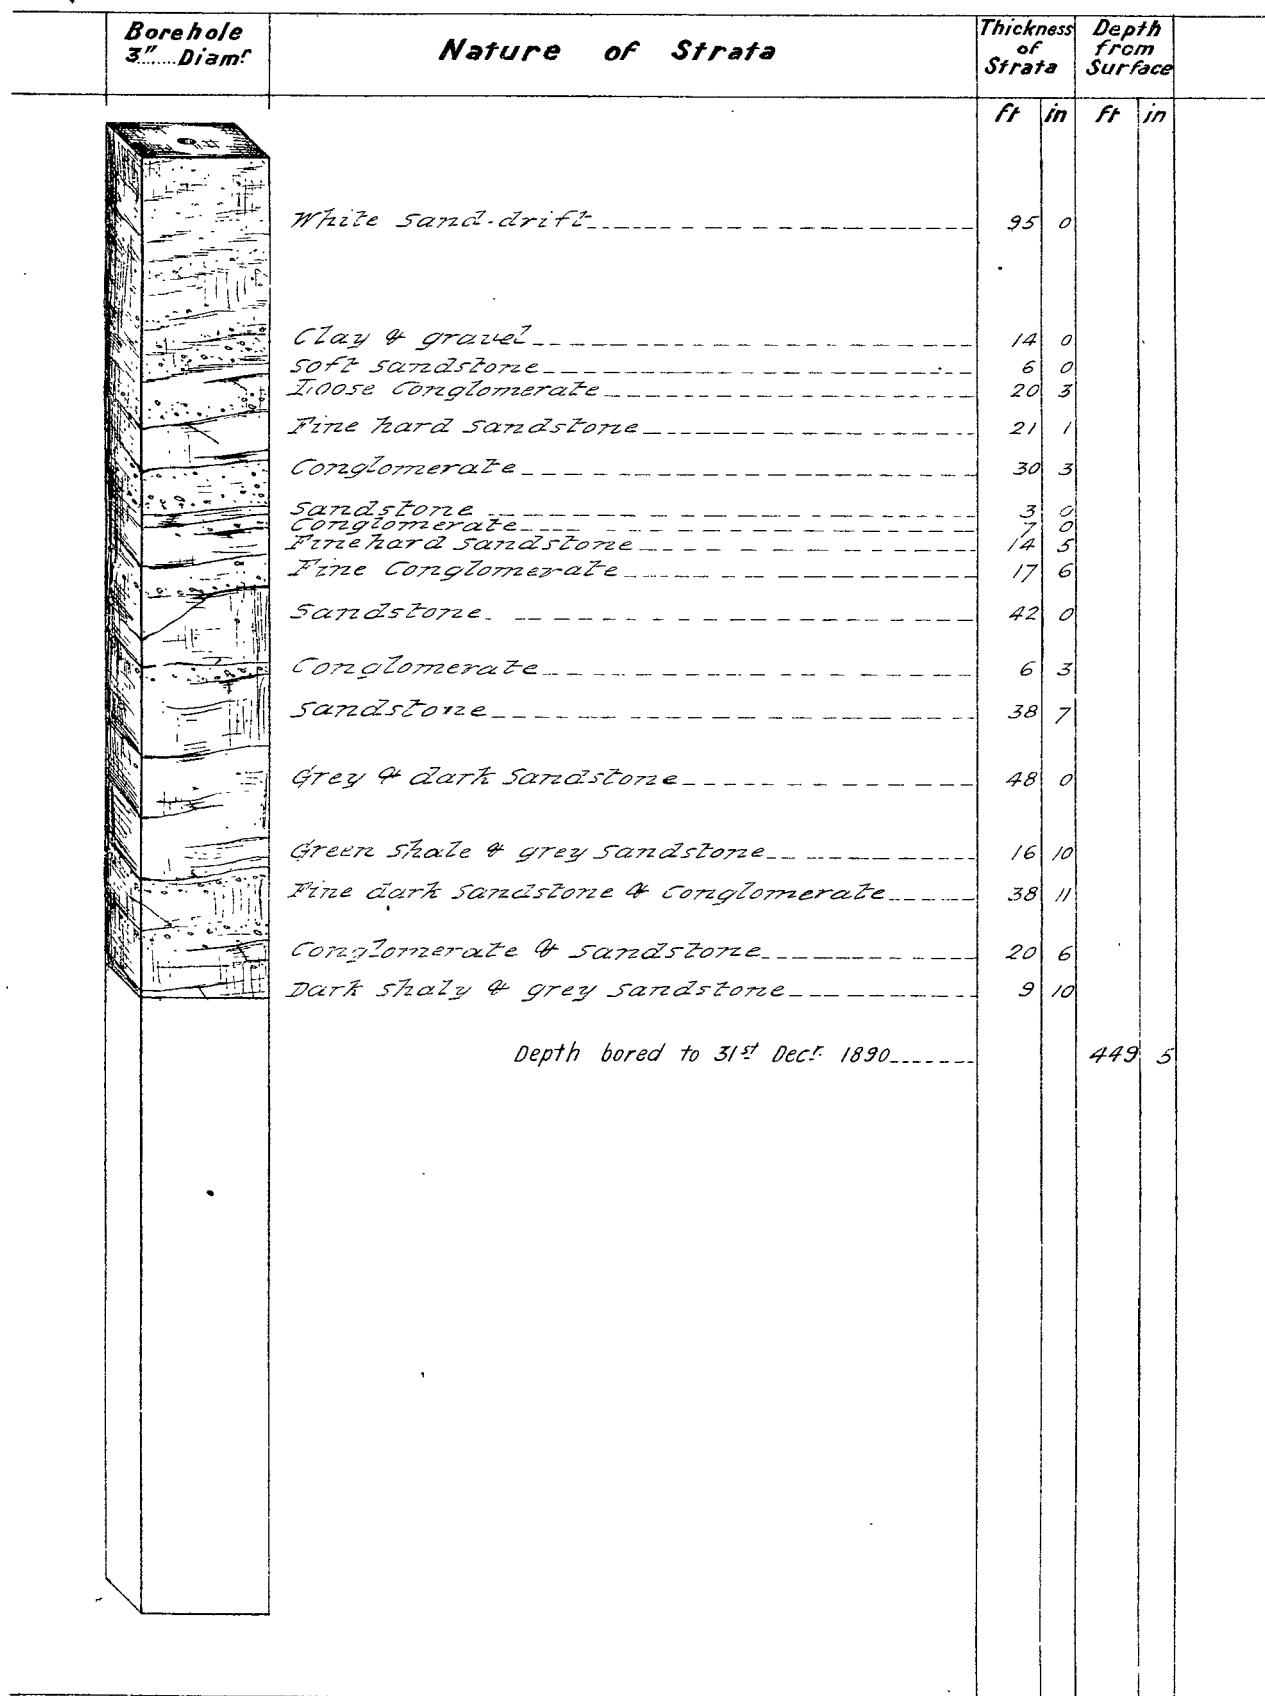 Borehole 3" Diamr | Nature of Strata | Thickness of Strata | Depth from Surface
ft in ft in
White sand-drift 95 0
Clay & gravel 14 0
Soft sandstone 6 0
Loose Conglomerate 20 3
Fine hard sandstone 21 1
Conglomerate 30 3
Sandstone 3 0
Conglomerate 7 0
Fine hard sandstone 14 5
Fine Conglomerate 17 6
Sandstone 42 0
Conglomerate 6 3
Sandstone 38 7
Grey & dark sandstone 48 0
Green shale & grey sandstone 16 10
Fine dark sandstone & Conglomerate 38 11
Conglomerate & sandstone 20 6
Dark shaly & grey sandstone 9 10
Depth bored to 31st Decr. 1890 449 5